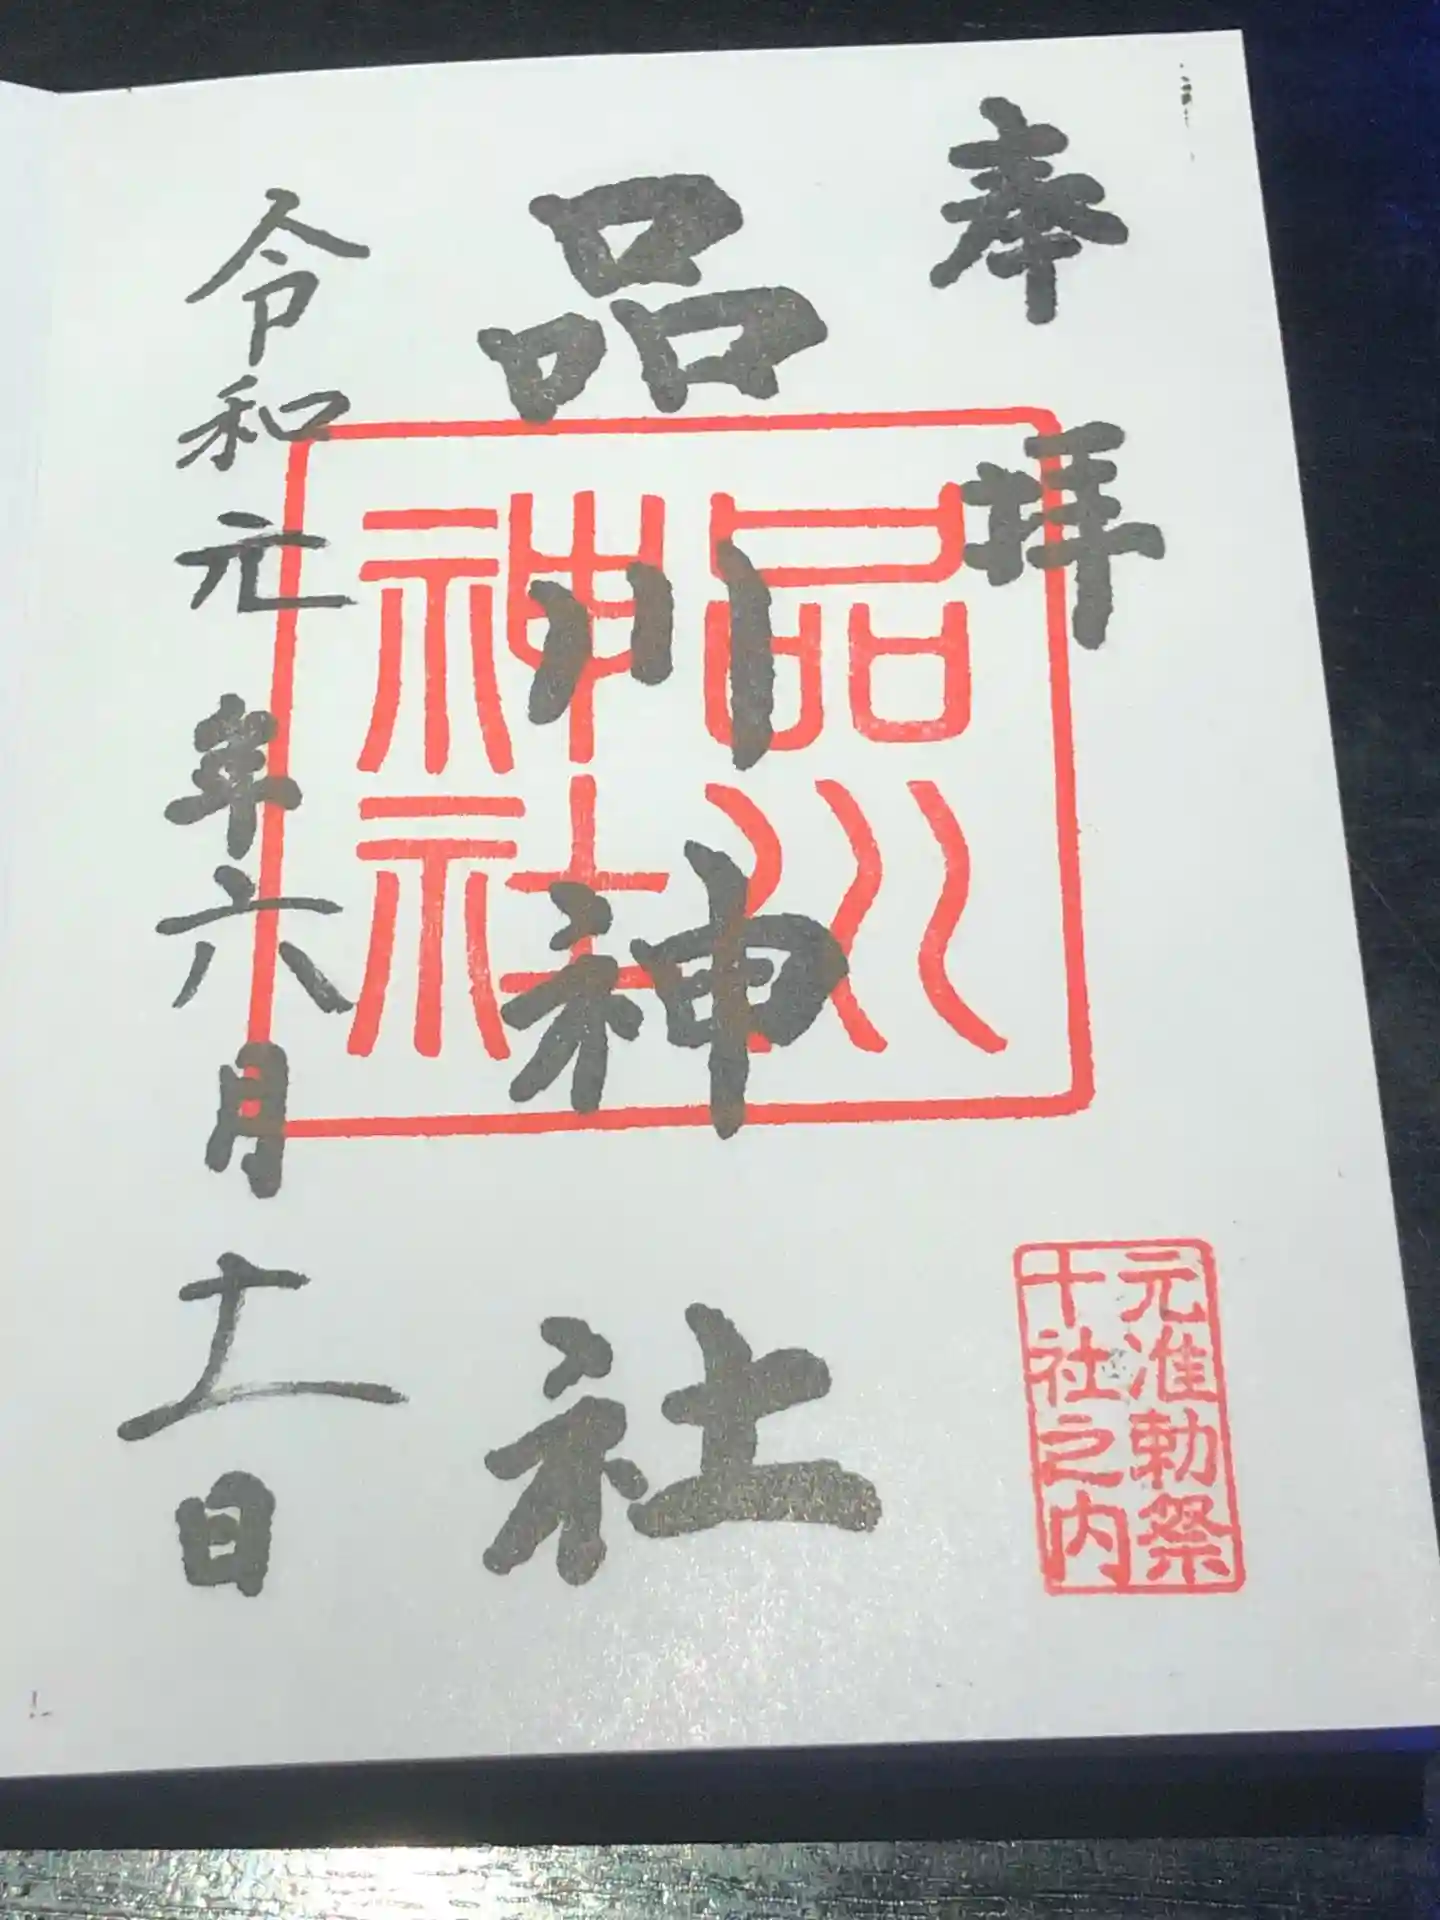 奉拝
品川神社
品川
神社
元准勅祭
十社之内
令和元年六月十八日